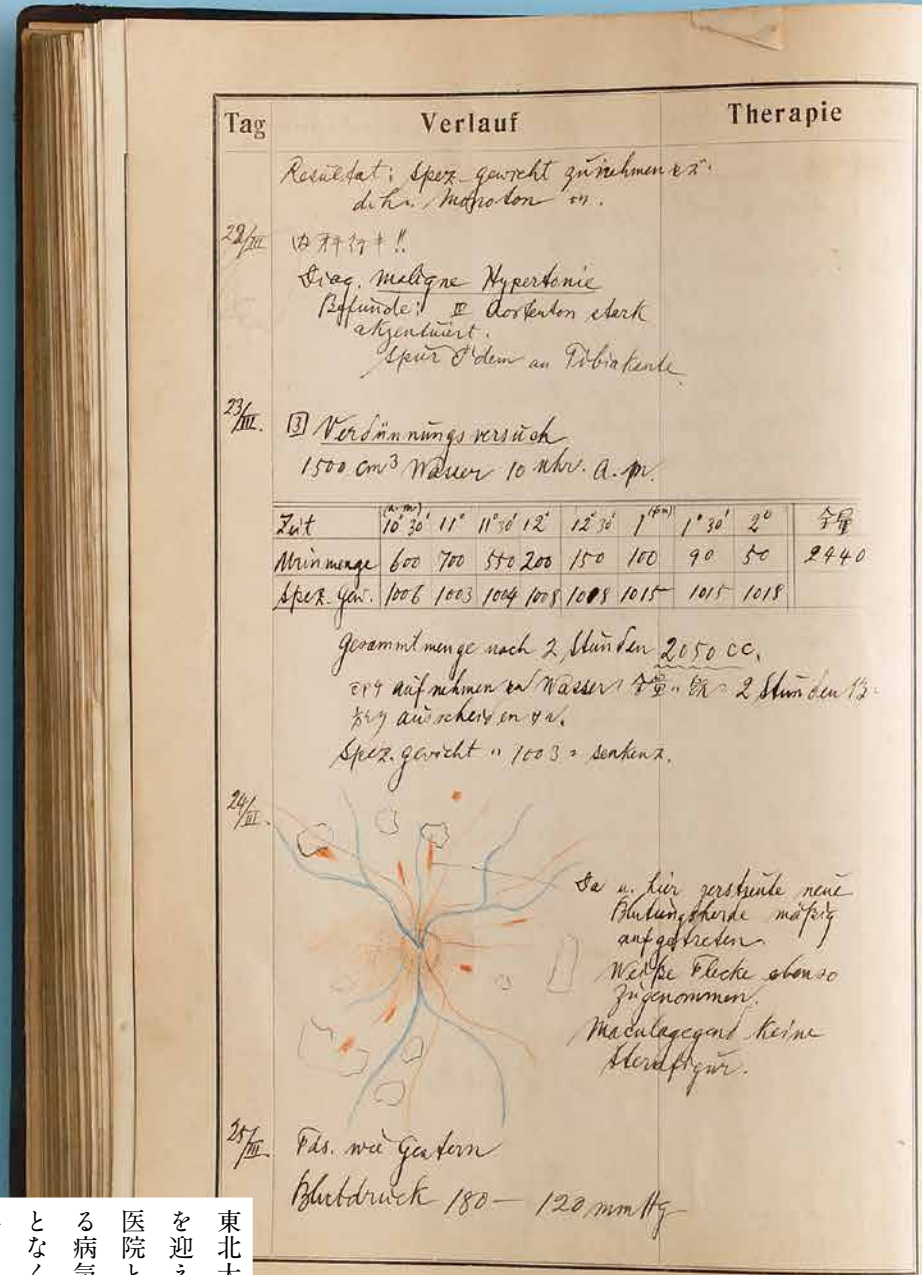 Tag Verlauf Therapie
Resultat: Spez. gewicht zunehmen
d.h. Monoton
22/III 内科行キ!!
Diag. maligne Hypertonie
Befunde: II Aortenton stark
akzentuiert.
Spur Ödem an Tibiakante
23/III. 3 Verdünnungsversuch
1500 cm³ Wasser 10 uhr. a.m.
Zeit (a.m) 10°30' 11° 11°30' 12° 12°30' 1° (pm) 1°30' 2° 全量
Urinmenge 600 700 550 200 150 100 90 50 2440
Spez. Gew. 1006 1003 1004 1008 1008 1015 1015 1018
Gesammtmenge nach 2 Stunden 2050 cc.
aufnehmen Wasser 全量 2 Stunden
ausscheiden
Spez. gewicht 1003 senken
24/III.
Da u. hier zerstreute neue
Blutungsherde mäßig
aufgetreten.
Weiße Flecke ebenso
zugenommen.
Maculagegend keine
Sternfigur.
25/III Fds. wie Gestern
Blutdruck 180 — 120 mmHg
東北大
を迎え
医院と
る病気
となく